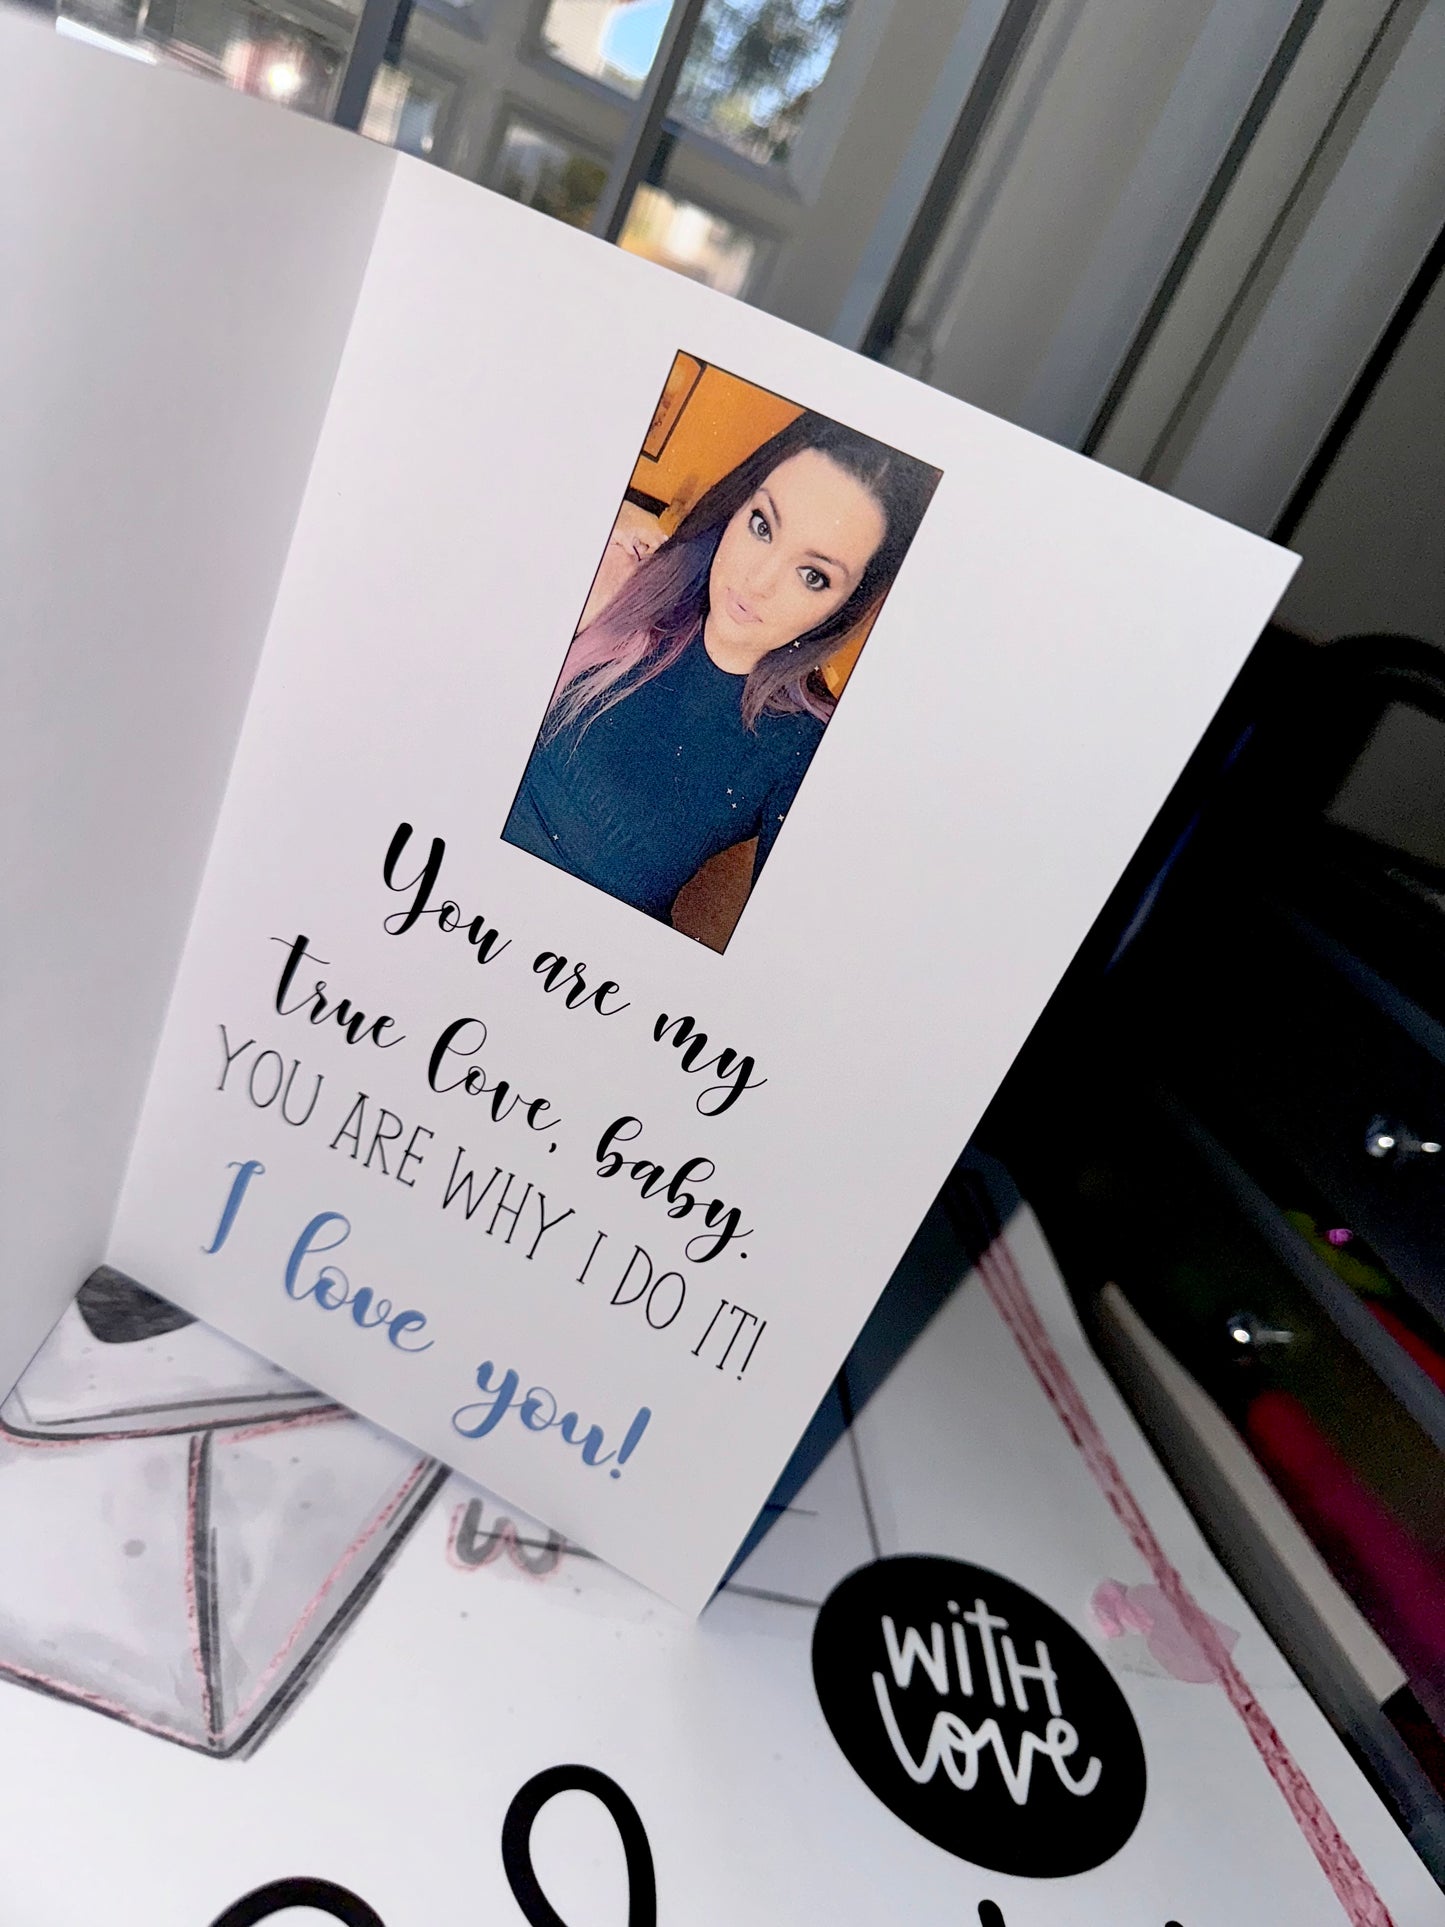 You are my
true love, baby.
YOU ARE WHY I DO IT!
I love you!
WiTH
love